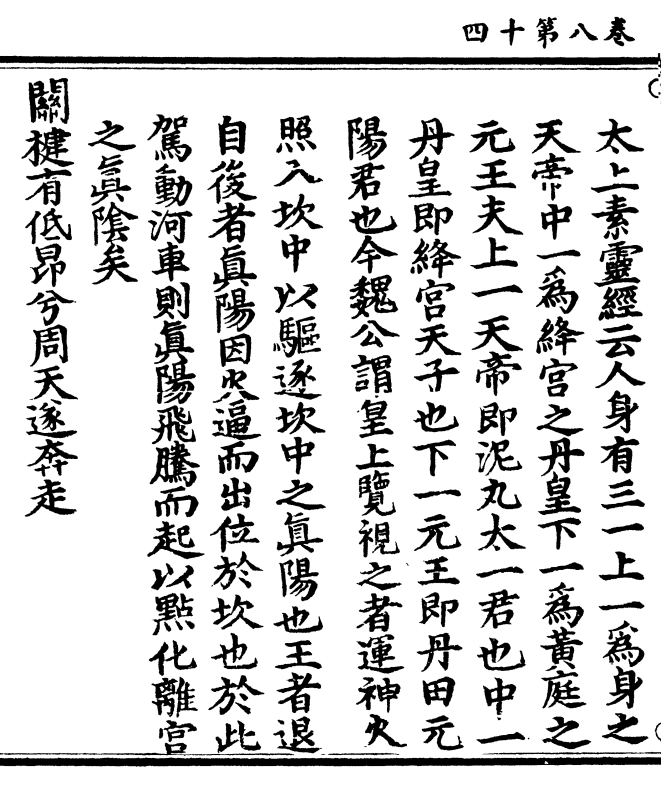 四十第八卷
太上素靈經云人身有三一上一為身之
天帝中一為絳宮之丹皇下一為黃庭之
元王夫上一天帝即泥丸太一君也中一
丹皇即絳宮天子也下一元王即丹田元
陽君也今魏公謂皇上覽視之者運神火
照入坎中以驅逐坎中之眞陽也王者退
自後者眞陽因火逼而出位於坎也於此
駕動河車則眞陽飛騰而起以㸃化離宮
之眞陰矣
關楗有低昂兮周天遂奔走